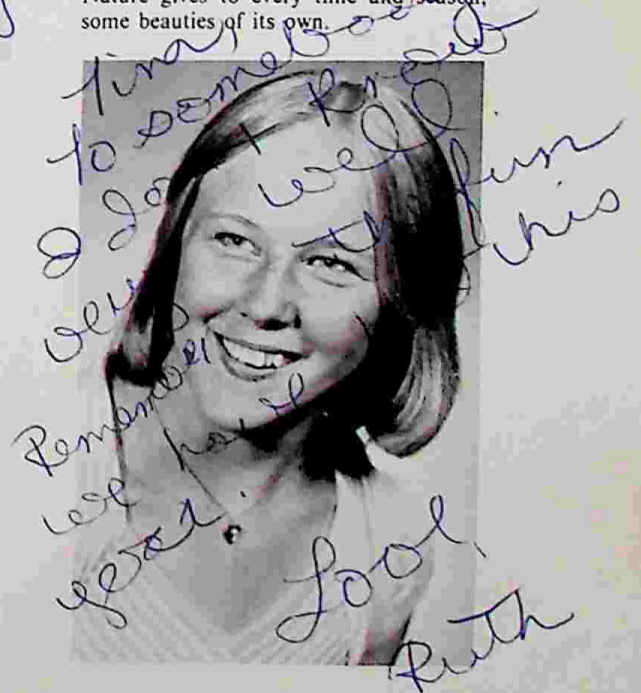 Nature gives to every time and season,
some beauties of its own.
Tina,
To somebody
I don't know
very well
Remember the fun
we have this
year.
Love,
Ruth